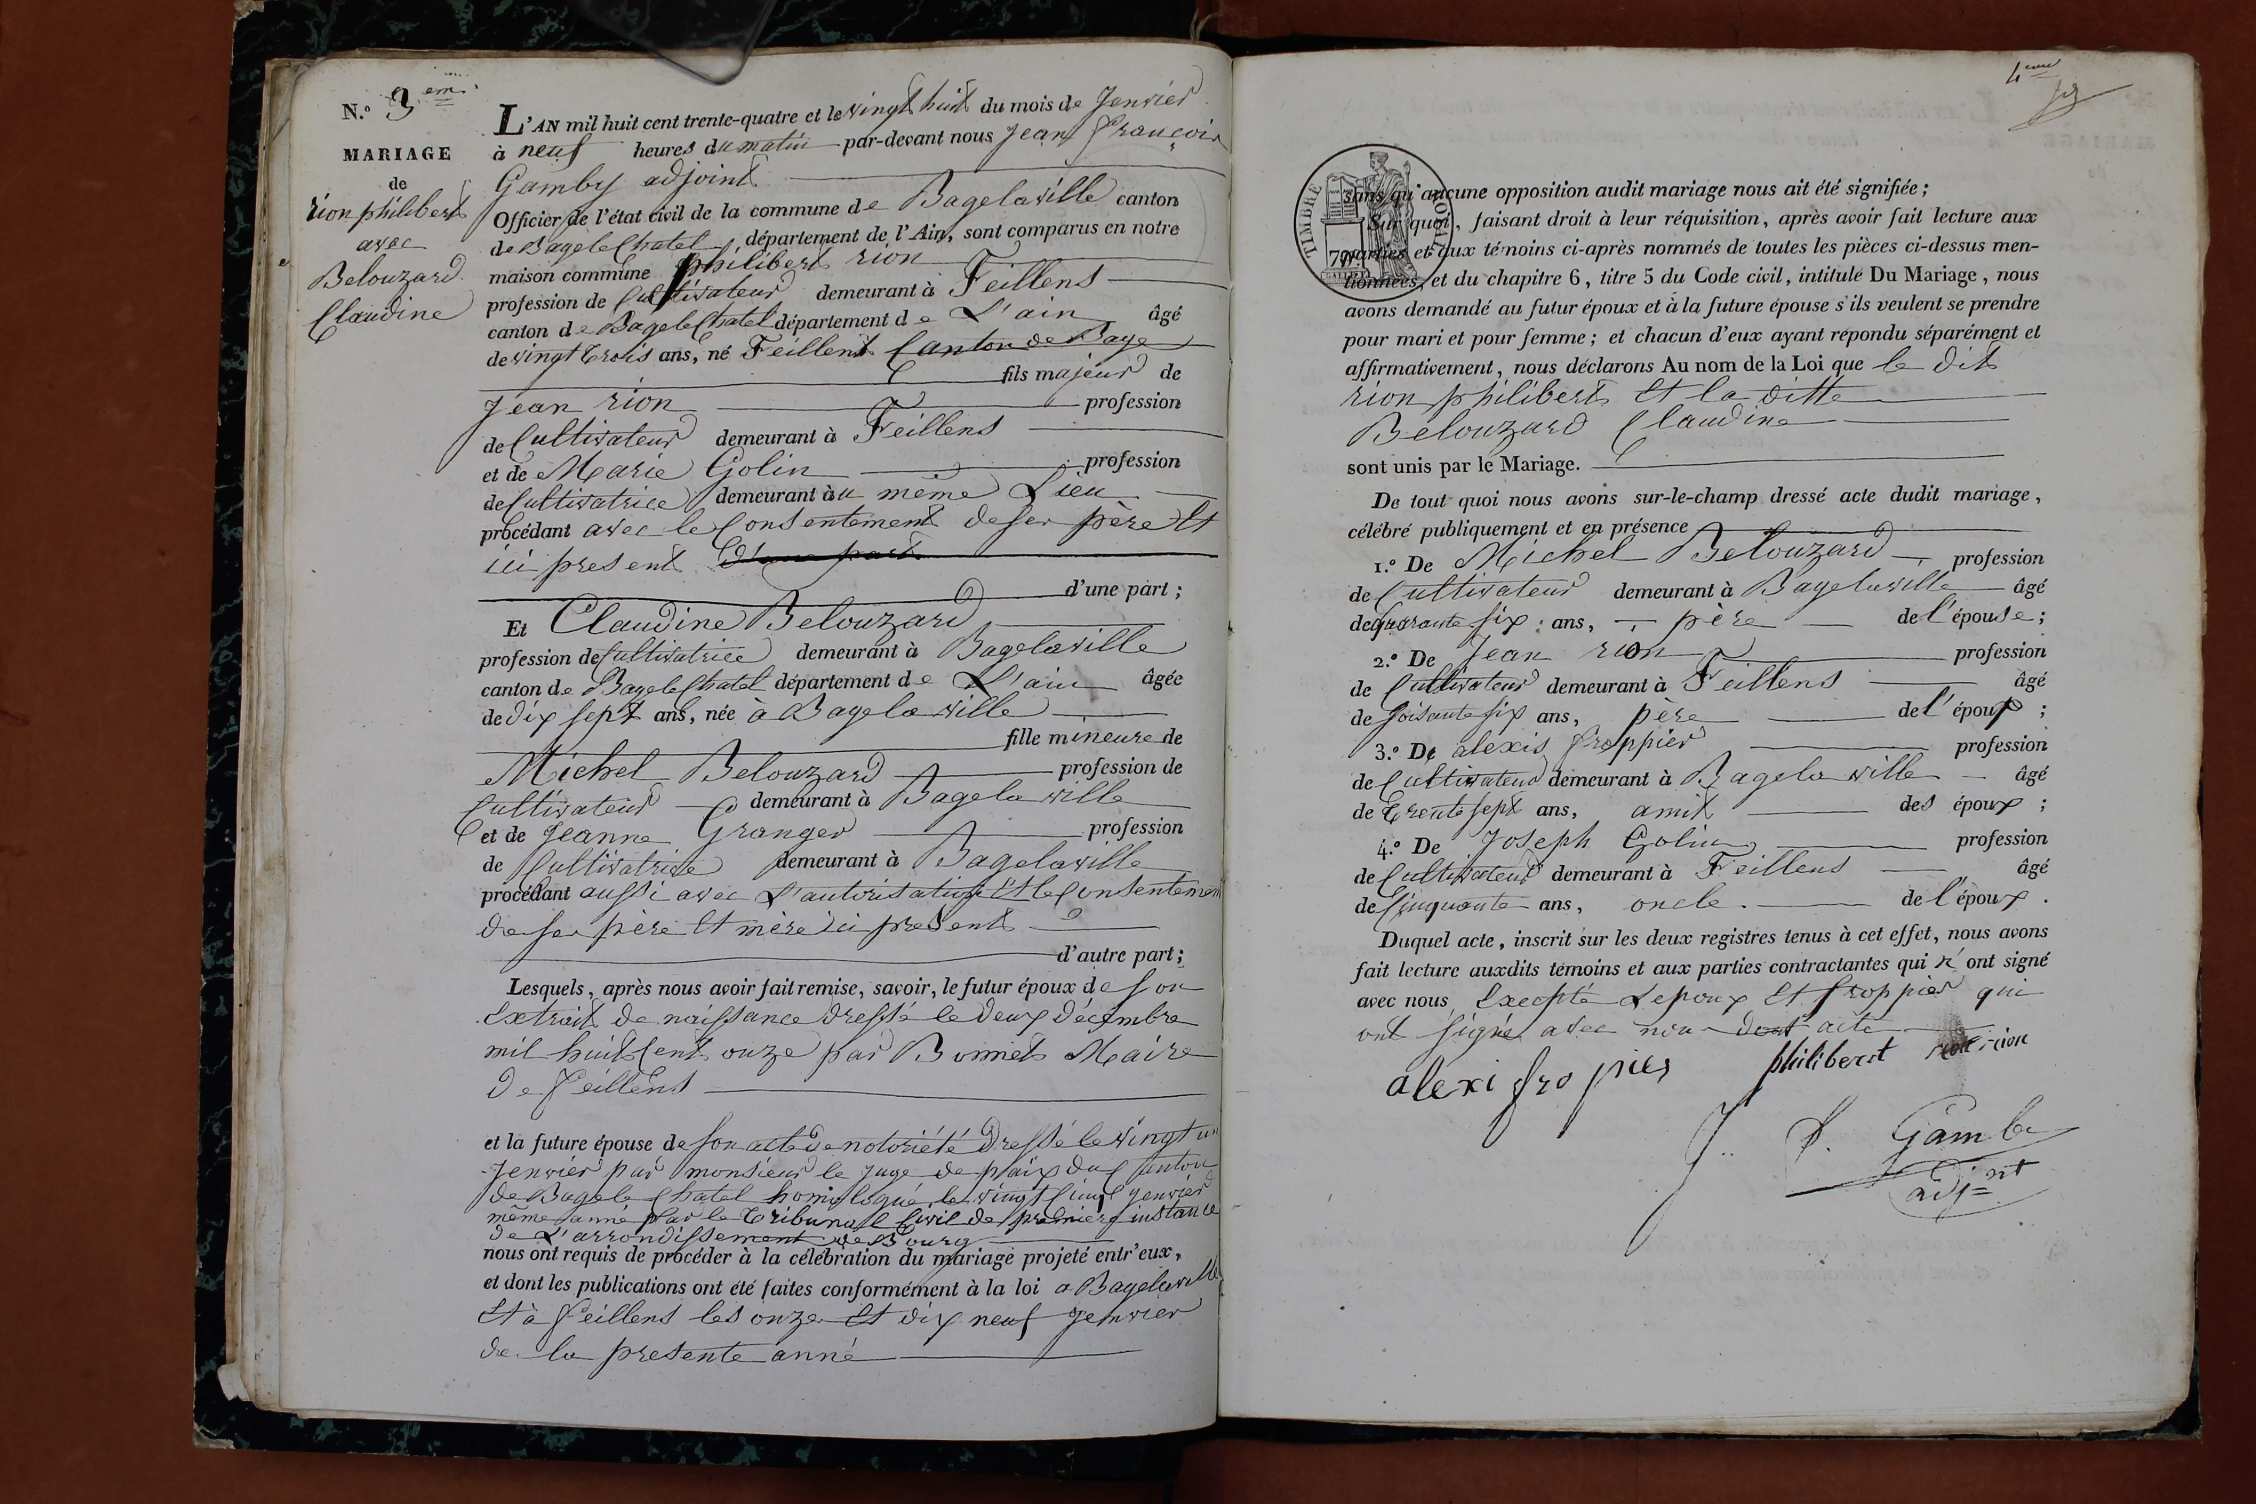 N.º 3em
MARIAGE
de
rion philibert
avec
Belouzard
Claudine
L'AN mil huit cent trente-quatre et le vingt huit du mois de Jenvier
à neuf heures du matin par-devant nous Jean François
Gamby adjoint
Officier de l'état civil de la commune de Bagelaville canton
de Bagele Chatel, département de l'Ain, sont comparus en notre
maison commune philibert rion
profession de Cultivateur demeurant à Feillens
canton de Bagele Chatel département de L'ain âgé
de vingt trois ans, né Feillent Canton de Bage
fils majeur de
Jean rion profession
de Cultivateur demeurant à Feillens
et de Marie Golin profession
de Cultivatrice demeurant au même Lieu
procédant avec le Consentement de ser père Et
ici present d'une part
d'une part ;
Et Claudine Belouzard
profession de Cultivatrice demeurant à Bagelaville
canton de Bagele Chatel département de L'ain âgée
de dix sept ans, née à Bagela ville
fille mineure de
Michel Belouzard profession de
Cultivateur demeurant à Bagela ville
et de Jeanne Granger profession
de Cultivatrice demeurant à Bagelaville
procédant aussi avec L'autorisation Et le Consentement
de ser père Et mère ici present
d'autre part ;
Lesquels, après nous avoir fait remise, savoir, le futur époux de son
Extrait de naissance dressé le deux décembre
mil huit Cent onze par Bonnet Maire
de Feillens
et la future épouse de son acte de notoriété dressé le vingt un
Jenvier par monsieur le Juge de paix du Canton
de Bagele Chatel homologué le vingt Cinq Jenvier
même anné par le tribunal Civil de première instance
de L'arrondissement de Bourg
nous ont requis de procéder à la célébration du mariage projeté entr'eux,
et dont les publications ont été faites conformément à la loi a Bagelaville
Et à Feillens les onze Et dix neuf Jenvier
de la presente anné
4eme
TIMBRE ROYAL
sans qu'aucune opposition audit mariage nous ait été signifiée ;
Sur quoi, faisant droit à leur réquisition, après avoir fait lecture aux
parties et aux témoins ci-après nommés de toutes les pièces ci-dessus men-
tionnées, et du chapitre 6, titre 5 du Code civil, intitulé Du Mariage, nous
avons demandé au futur époux et à la future épouse s'ils veulent se prendre
pour mari et pour femme ; et chacun d'eux ayant répondu séparément et
affirmativement, nous déclarons Au nom de la Loi que le dit
rion philibert Et la ditte
Belouzard Claudine
sont unis par le Mariage.
De tout quoi nous avons sur-le-champ dressé acte dudit mariage,
célébré publiquement et en présence
1.º De Michel Belouzard profession
de Cultivateur demeurant à Bagelaville âgé
de quarante six ans, père de l'épouse ;
2.º De Jean rion profession
de Cultivateur demeurant à Feillens âgé
de soisante six ans, père de l'époux ;
3.º De alexis froppier profession
de Cultivateur demeurant à Bagela ville âgé
de trente sept ans, amit des époux ;
4.º De Joseph Golin profession
de Cultivateur demeurant à Feillens âgé
de Cinquante ans, oncle de l'époux.
Duquel acte, inscrit sur les deux registres tenus à cet effet, nous avons
fait lecture auxdits témoins et aux parties contractantes qui n'ont signé
avec nous Excepté Lepoux Et froppier qui
ont signé avec nous dont acte
alexi fropier philibert rion
J. f. Gambe
adjnt